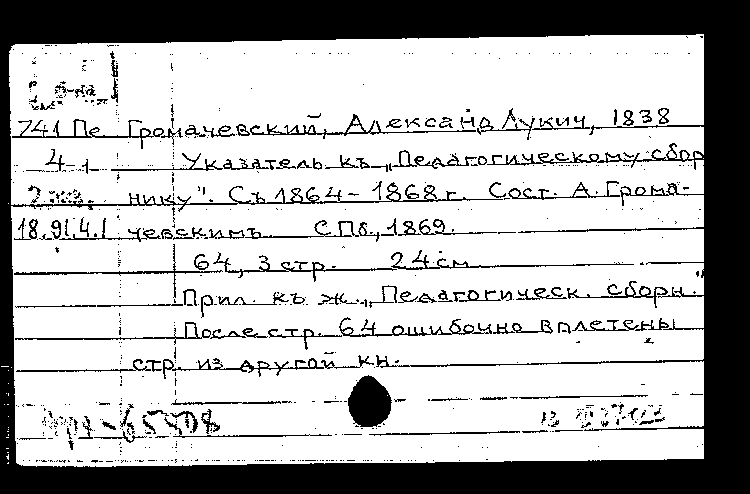 б-ка
741 Пе Громачевский, Александ Лукич, 1838
4-1 Указатель къ „Педагогическому сбор
2 экз. нику". Съ 1864-1868 г. Сост. А. Грома-
18.91.4.1 чевскимъ. СПб., 1869.
64, 3 стр. 24 см
Прил. къ ж. „Педагогическ. сборн."
После стр. 64 ошибочно вплетены
стр. из другой кн.